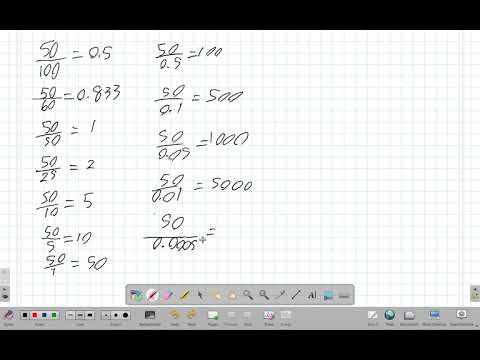 50/100 = 0.5
50/60 = 0.833
50/50 = 1
50/25 = 2
50/10 = 5
50/5 = 10
50/1 = 50
50/0.5 = 100
50/0.1 = 500
50/0.05 = 1000
50/0.01 = 5000
50/0.0005 =